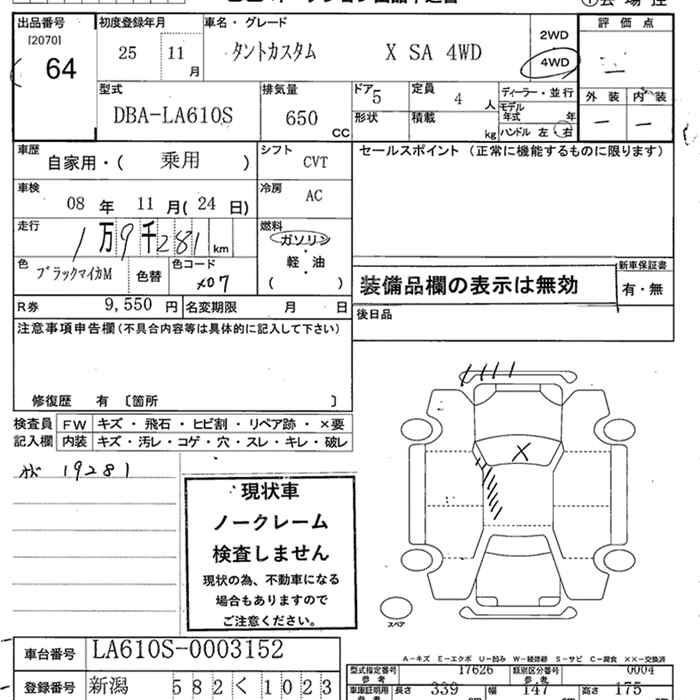 出品番号 初度登録年月 車名・グレード 評価点
[2070]
64 25 11月 タントカスタム X SA 4WD 2WD 4WD
型式 排気量 ドア 定員 外装 内装
DBA-LA610S 650 CC 5 4人 ディーラー・並行
形状 積載 kg モデル年式 年
ハンドル 左・右
車歴 自家用・( 乗用 ) シフト CVT セールスポイント (正常に機能するものに限ります)
車検 08年 11月(24日) 冷房 AC
走行 1万9千281km 燃料 ガソリン・軽・油 ( )
色 ブラックマイカM 色替 色コード X07
装備品欄の表示は無効 新車保証書 有・無
R券 9,550円 名変期限 月 日 後日品
注意事項申告欄(不具合内容等は具体的に記入して下さい)
修復歴 有 〔箇所 〕
検査員 FW キズ・飛石・ヒビ割・リペア跡・×要
記入欄 内装 キズ・汚レ・コゲ・穴・スレ・キレ・破レ
19281
現状車
ノークレーム
検査しません
現状の為、不動車になる
場合もありますので
ご注意ください。
X
スペア
車台番号 LA610S-0003152
A-キズ E-エクボ U-凹み W-補修跡 S-サビ C-腐食 ××-交換済
型式指定番号 参考 17626 類別区分番号 参考 0004
登録番号 新潟 582く1023
車庫証明用 参考 長さ 339 幅 147 高さ 175